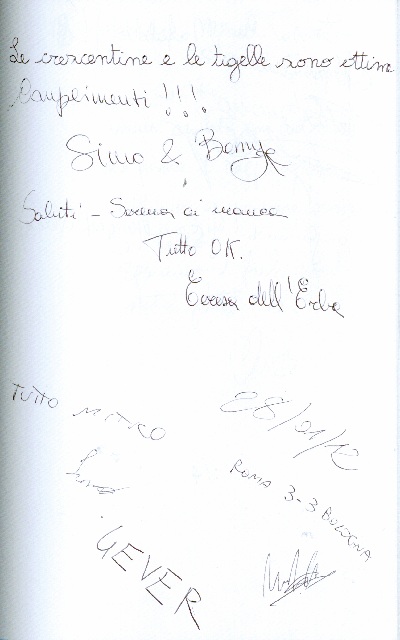 Le crescentine e le tigelle sono ottime
Complimenti !!!.
Simo & Bamy
Saluti - Serena ci manca
Tutto OK.
dell'Erba
TUTTO
08/01/12
ROMA 3-3 BOLOGNA
GEVER